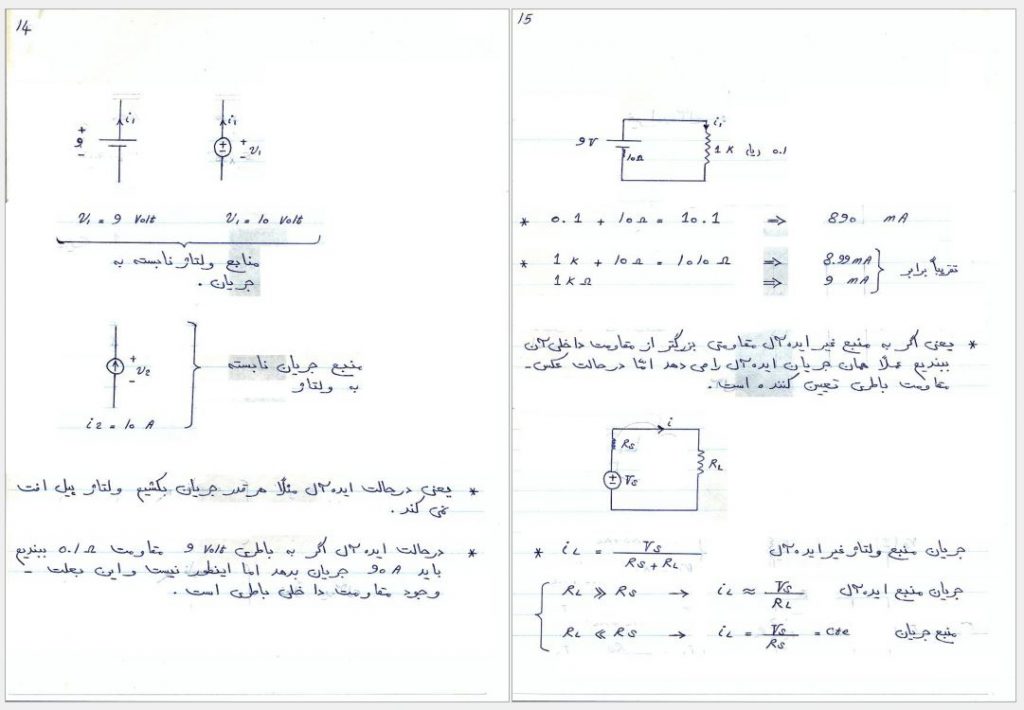 14
i₁
i₁
+
9
-
+
-
v₁
V₁ = 9 Volt V₁ = 10 Volt
منابع ولتاژ نابسته به
جریان .
+
v₂
-
منبع جریان نابسته
به ولتاژ
i2 = 10 A
* یعنی درحالت ایده آل مثلاً هر قدر جریان بکشیم ولتاژ پیل افت
نمی کند .
* درحالت ایده آل اگر به باطری 9 Volt مقاومت 0.1 Ω ببندیم
باید 90 A جریان بدهد اما اینطور نیست و این بعلت -
وجود مقاومت داخلی باطری است .
15
i₁
9V
10Ω
1 K یا 0.1
* 0.1 + 10 Ω = 10.1 ⇒ 890 mA
* 1 K + 10 Ω = 1010 Ω ⇒ 8.99 mA
1 K Ω ⇒ 9 mA
تقریباً برابر
* یعنی اگر به منبع غیر ایده آل مقاومتی بزرگتر از مقاومت داخلی آن
ببندیم عملاً همان جریان ایده آل را می دهد امّا درحالت عکس -
مقاومت باطری تعیین کننده است .
i
RS
RL
VS
* iL = VS / RS + RL جریان منبع ولتاژ غیر ایده آل
RL ≫ RS → iL ≈ VS / RL جریان منبع ایده آل
RL ≪ RS → iL = VS / RS = cte منبع جریان